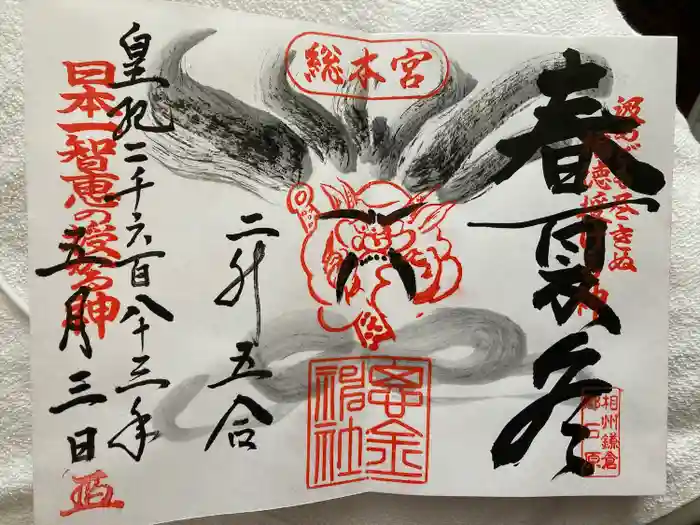 総本宮
尽きぬ
春夏冬
相州鎌倉
郡石原
思金
神社
二升五合
皇紀二千六百八十三年
日本一智恵の授かる神
五月三日